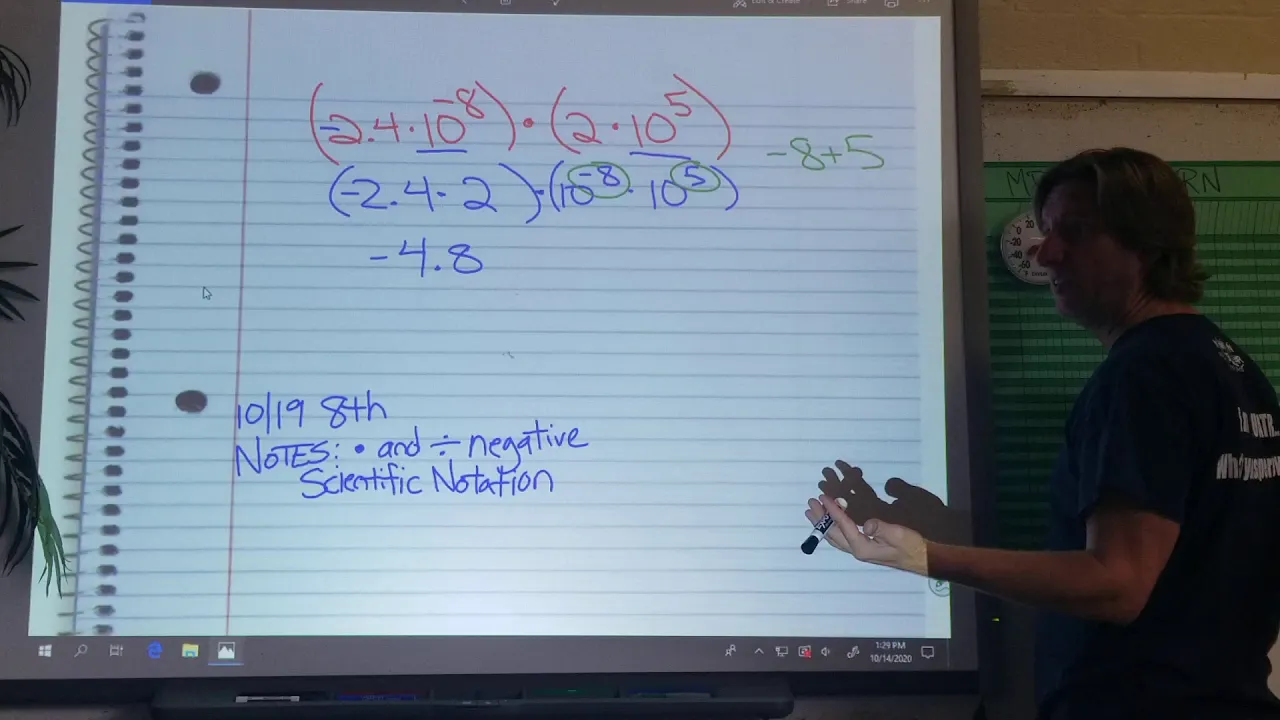 Edit & Create
Share
(-2.4·10⁻⁸)·(2·10⁵)
-8+5
(-2.4·2)·(10⁻⁸·10⁵)
-4.8
10/19 8th
NOTES: • and ÷ negative
Scientific Notation
1:29 PM
10/14/2020